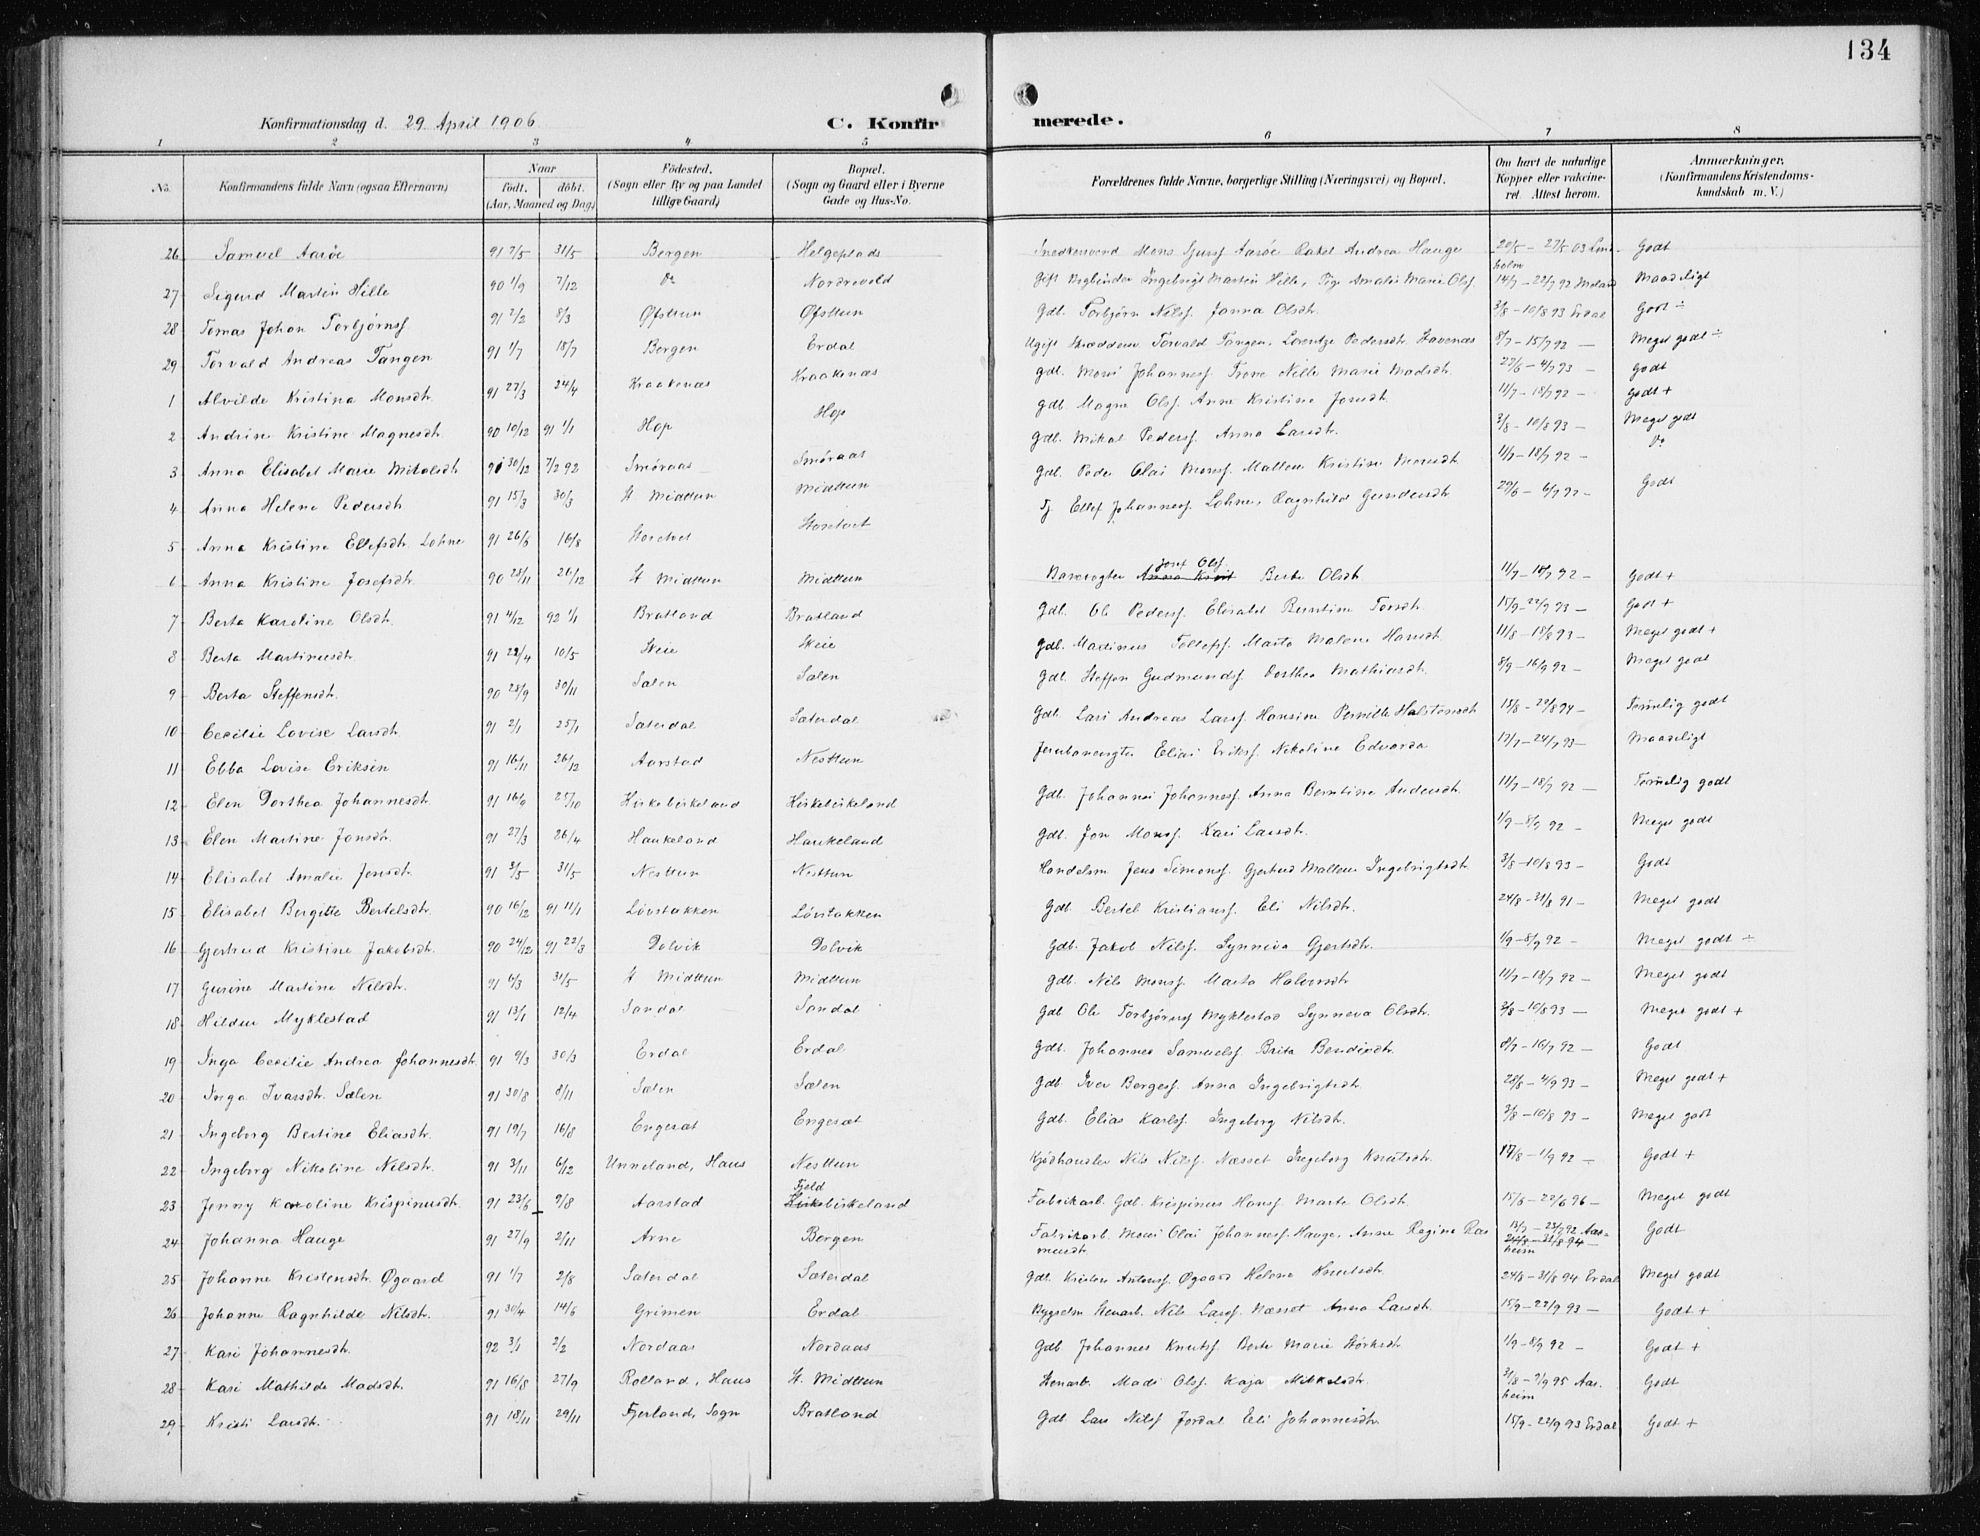 134
Konfirmationsdag d. 29 April 1906
C. Konfirmerede.
1 2 3 4 5 6 7 8
No. Konfirmandens fulde Navn (ogsaa Efternavn) Naar födt. döbt. (Aar, Maaned og Dag) Födested. (Sogn eller By og paa Landet tillige Gaard) Bopæl. (Sogn og Gaard eller i Byerne Gade og Hus-No. Forældrenes fulde Navne, borgerlige Stilling (Næringsvei) og Bopæl. Om havt de naturlige Kopper eller vakcineret. Attest herom. Anmærkninger. (Konfirmandens Kristendomskundskab m. V.)
26 Samuel Aarøe 91 7/5 31/5 Bergen Helgeplads Aarøe Rakel Andrea Hauge 20/5 – 27/5 03 Godt
27 Sigurd Martin Hille 90 1/9 7/12 Do Nordrevold Ingebrigt Martin Hille, Pige Amalie Marie Olsd. 14/7 – 22/7 92 Godt Maadeligt
28 Tomas Johan Torbjørnsf. 91 2/2 8/3 Øfsttun Øfsttun Gdb. Torbjørn Nilsf. Janna Olsdtr. 3/8 – 10/8 93 Erdal Godt ÷
29 Torvald Andreas Tangen 91 1/7 18/7 Bergen Erdal Ugift Skrædder Torvald Tangen, Lorentze Pedersdtr. Havenæs 8/7 – 15/7 92 — Meget godt ÷
1 Alvilde Kristina Monsdtr. 91 27/3 24/4 Kraakenæs Kraakenæs Gdb. Mons Johannesf. Trone Nille Marie Madsdtr. 27/6 – 4/7 93 — Godt
2 Andrine Kristine Magnesdtr. 90 10/12 91 1/1 Hop Hop Gdb. Magne Olsf. Anne Kristine Jonsdtr. 11/7 – 18/7 92 — Godt +
3 Anna Elisabet Marie Mikalsdtr 91 30/12 7/2 92 Smøraas Smøraas Gdb. Mikal Pedersf. Anna Larsdtr. 3/8 – 10/8 93 — Meget godt
4 Anna Helene Pedersdtr. 91 15/3 30/3 St Midttun Midttun Gdb. Peder Olai Monsf. Mallene Kristine Monsdtr. 11/7 – 18/7 92 — Do
5 Anna Kristine Ellefsdtr. Lohne 91 26/6 16/8 Storetvet Storetvet Ellef Johannesf. Lohne, Ragnhild Gundersdtr 29/6 – 6/7 92 — Godt
6 Anna Kristine Josefsdtr. 90 28/11 26/12 St Midttun Midttun Banevogter Josef Olsf. Berte Olsdtr. 11/7 – 18/7 92 — Godt +
7 Berta Karoline Olsdtr. 91 4/12 92 1/1 Bratland Bratland Gdb. Ole Pedersf. Elisabet Berntine Torsdtr. 15/9 – 22/9 93 — Godt +
8 Berta Martinusdtr. 91 22/4 10/5 Skeie Skeie Gdb. Martinus Tollefsf. Marta Malene Hansdtr. 11/8 – 18/8 93 — Meget godt +
9 Berta Steffensdtr. 90 28/9 30/11 Sælen Sælen Gdb. Steffen Gudmundsf. Dorthea Mathiasdtr. 8/9 – 16/9 92 — Meget godt
10 Cecilie Lovise Larsdtr. 91 2/1 25/1 Sæterdal Sæterdal Gdb. Lars Andreas Larsf. Hansine Pernille Halstensdtr 15/8 – 22/8 94 — Temmelig godt
11 Ebba Lovise Eriksen 91 16/11 26/12 Aarstad Nesttun Elias Eriksf. Nikoline Edvarda 17/7 – 24/7 93 — Maadeligt
12 Elen Dorthea Johannesdtr. 91 16/9 25/10 Kirkebirkeland Kirkebirkeland Gdb. Johannes Johannesf. Anna Berntine Andersdtr. 11/7 – 18/7 92 — Temmelig godt
13 Elen Martine Jonsdtr. 91 27/3 26/4 Haukeland Haukeland Gdb. Jon Monsf. Kari Larsdtr. 1/9 – 8/9 92 — Meget godt
14 Elisabet Amalie Jensdtr. 91 3/5 31/5 Nesttun Nesttun Handelsm. Jens Simonsf. Gjertrud Mallene Ingebrigtsdtr 3/8 – 10/8 93 — Godt
15 Elisabet Bergitte Bertelsdtr. 90 16/12 91 11/1 Løvstakken Løvstakken Gdb. Bertel Kristiansf. Eli Nilsdtr. 24/8 – 31/8 91 — Meget godt
16 Gjertrud Kristine Jakobsdtr. 90 24/12 91 22/3 Dolvik Dolvik Gdb. Jakob Nilsf. Synneva Gjertsdtr. 1/9 – 8/9 92 — Meget godt ÷
17 Gurine Martine Nilsdtr. 91 6/3 31/5 St Midttun Midttun Gdb. Nils Monsf. Marta Halvorsdtr 11/7 – 18/7 92 — Meget godt
18 Hildur Myklestad 91 13/1 12/4 Sandal Sandal Gdb Ole Torbjørnsf Myklestad Synneva Olsdtr. 3/8 – 10/8 93 — Meget godt +
19 Inga Cecilie Andrea Johannesdtr. 91 9/3 30/3 Erdal Erdal Gdb. Johannes Samuelsf. Brita Bendixdtr. 8/7 – 16/7 92 — Godt
20 Inga Ivarsdtr. Sælen 91 30/8 8/11 Sælen Sælen Gdb. Iver Børgesf. Anna Ingebrigtsdtr. 28/8 – 4/9 93 — Meget godt +
21 Ingeborg Bertine Eliasdtr. 91 19/7 16/8 Engesæt Engesæt Gdb. Elias Karlsf. Ingeborg Nilsdtr. 3/8 – 10/8 93 — Meget godt
22 Ingeborg Nikoline Nilsdtr. 91 3/11 6/12 Unneland, Haus Nesttun Kjødhandler Nils Nilsf. Næsset Ingeborg Knutsdtr. 17/8 – 1/9 92 — Godt +
23 Jenny Karoline Krispinusdtr. 91 23/6 9/8 Aarstad Fjeld Kirkebirkeland Fabrikarb. Gdb. Krispinus Hansf. Marte Olsdtr. 15/6 – 22/6 96 — Meget godt
24 Johanna Hauge 91 27/9 2/11 Arne Bergen Fabrikarb. Mons Olai Johannesf. Hauge, Anne Regine Rasmusdtr. 24/8 – 31/8 94 — Aarheim Godt
25 Johanne Kristensdtr. Øgaard 91 1/7 2/8 Sæterdal Sæterdal Gdb. Kristen Antonsf. Øgaard Helene Knutsdtr. 24/8 – 31/8 94 Erdal Meget godt
26 Johanne Ragnhilde Nilsdtr. 91 30/4 14/6 Grimen Erdal Nils Larsf. Næsset Anna Larsdtr. 15/9 – 22/9 93 — Godt +
27 Kari Johannesdtr. 92 3/1 2/2 Nordaas Nordaas Gdb Johannes Knutsf. Berte Marie Størksdtr. 1/9 – 8/9 92 — Godt +
28 Kari Mathilde Madsdtr. 91 16/8 27/9 Rolland, Haus St. Midttun Stenarb. Mads Olsf. Kaja Mikkelsdtr. 31/8 – 7/9 95 Aarheim Godt
29 Kristi Larsdtr. 91 18/11 29/11 Fjerland, Sogn Bratland Gdb Lars Nilsf Jordal Eli Johannesdtr. 15/9 – 22/9 93 Erdal Godt +